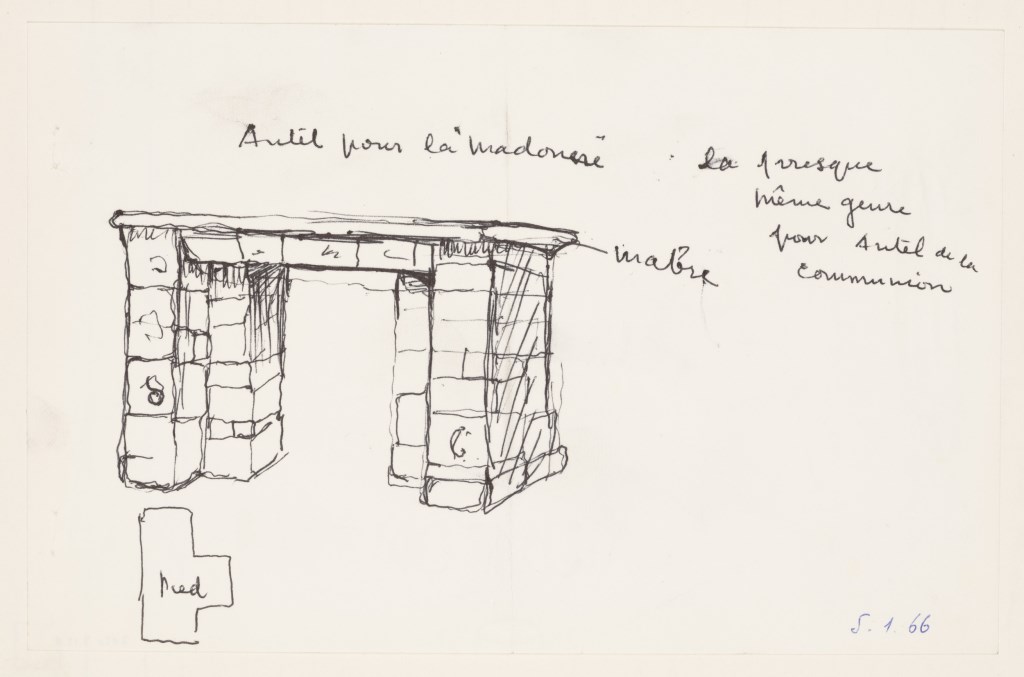 Autel pour la madone
la presque
même genre
pour Autel de la
communion
marbre
Pied
5. 1. 66